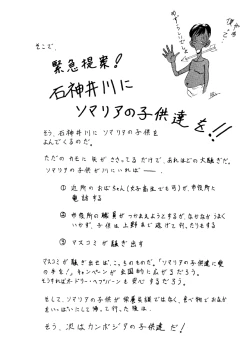 そこで、
緊急提案!
石神井川に
ソマリアの子供達を!!
そう、石神井川にソマリアの子供を
よんでくるのだ。
ただのカモに矢がささってるだけで、あれほどの大騒ぎだ。
ソマリアの子供が川にいれば——、
① 近所のおばちゃん(女子高生でも可)が、市役所に
電話する
② 市役所の職員がつかまえようとするが、なかなかうまく
いかず、子供は上野まで逃げて行ったりもする
③ マスコミが騒ぎ出す
マスコミが騒ぎ出せば、こっちのものだ。「ソマリアの子供達に愛
の手を!」キャンペーンが全国的に広がるだろう。
そうすればオードリー・ヘプバーンも安心するだろう。
そして、ソマリアの子供が栄養失調ではなく、食べ物でおなか
をいっぱいにして帰って行った後は、
そう、次はカンボジアの子供達だ!